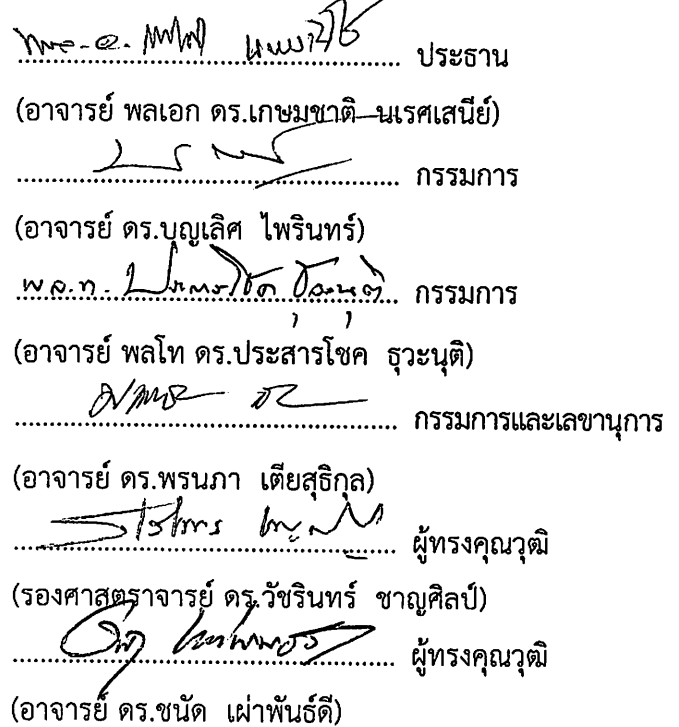 ประธาน
(อาจารย์ พลเอก ดร.เกษมชาติ นเรศเสนีย์)
กรรมการ
(อาจารย์ ดร.บุญเลิศ ไพรินทร์)
พล.ท. ประสารโชค ธุวะนุติ กรรมการ
(อาจารย์ พลโท ดร.ประสารโชค ธุวะนุติ)
กรรมการและเลขานุการ
(อาจารย์ ดร.พรนภา เตียสุธิกุล)
ผู้ทรงคุณวุฒิ
(รองศาสตราจารย์ ดร.วัชรินทร์ ชาญศิลป์)
ผู้ทรงคุณวุฒิ
(อาจารย์ ดร.ชนัด เผ่าพันธ์ดี)